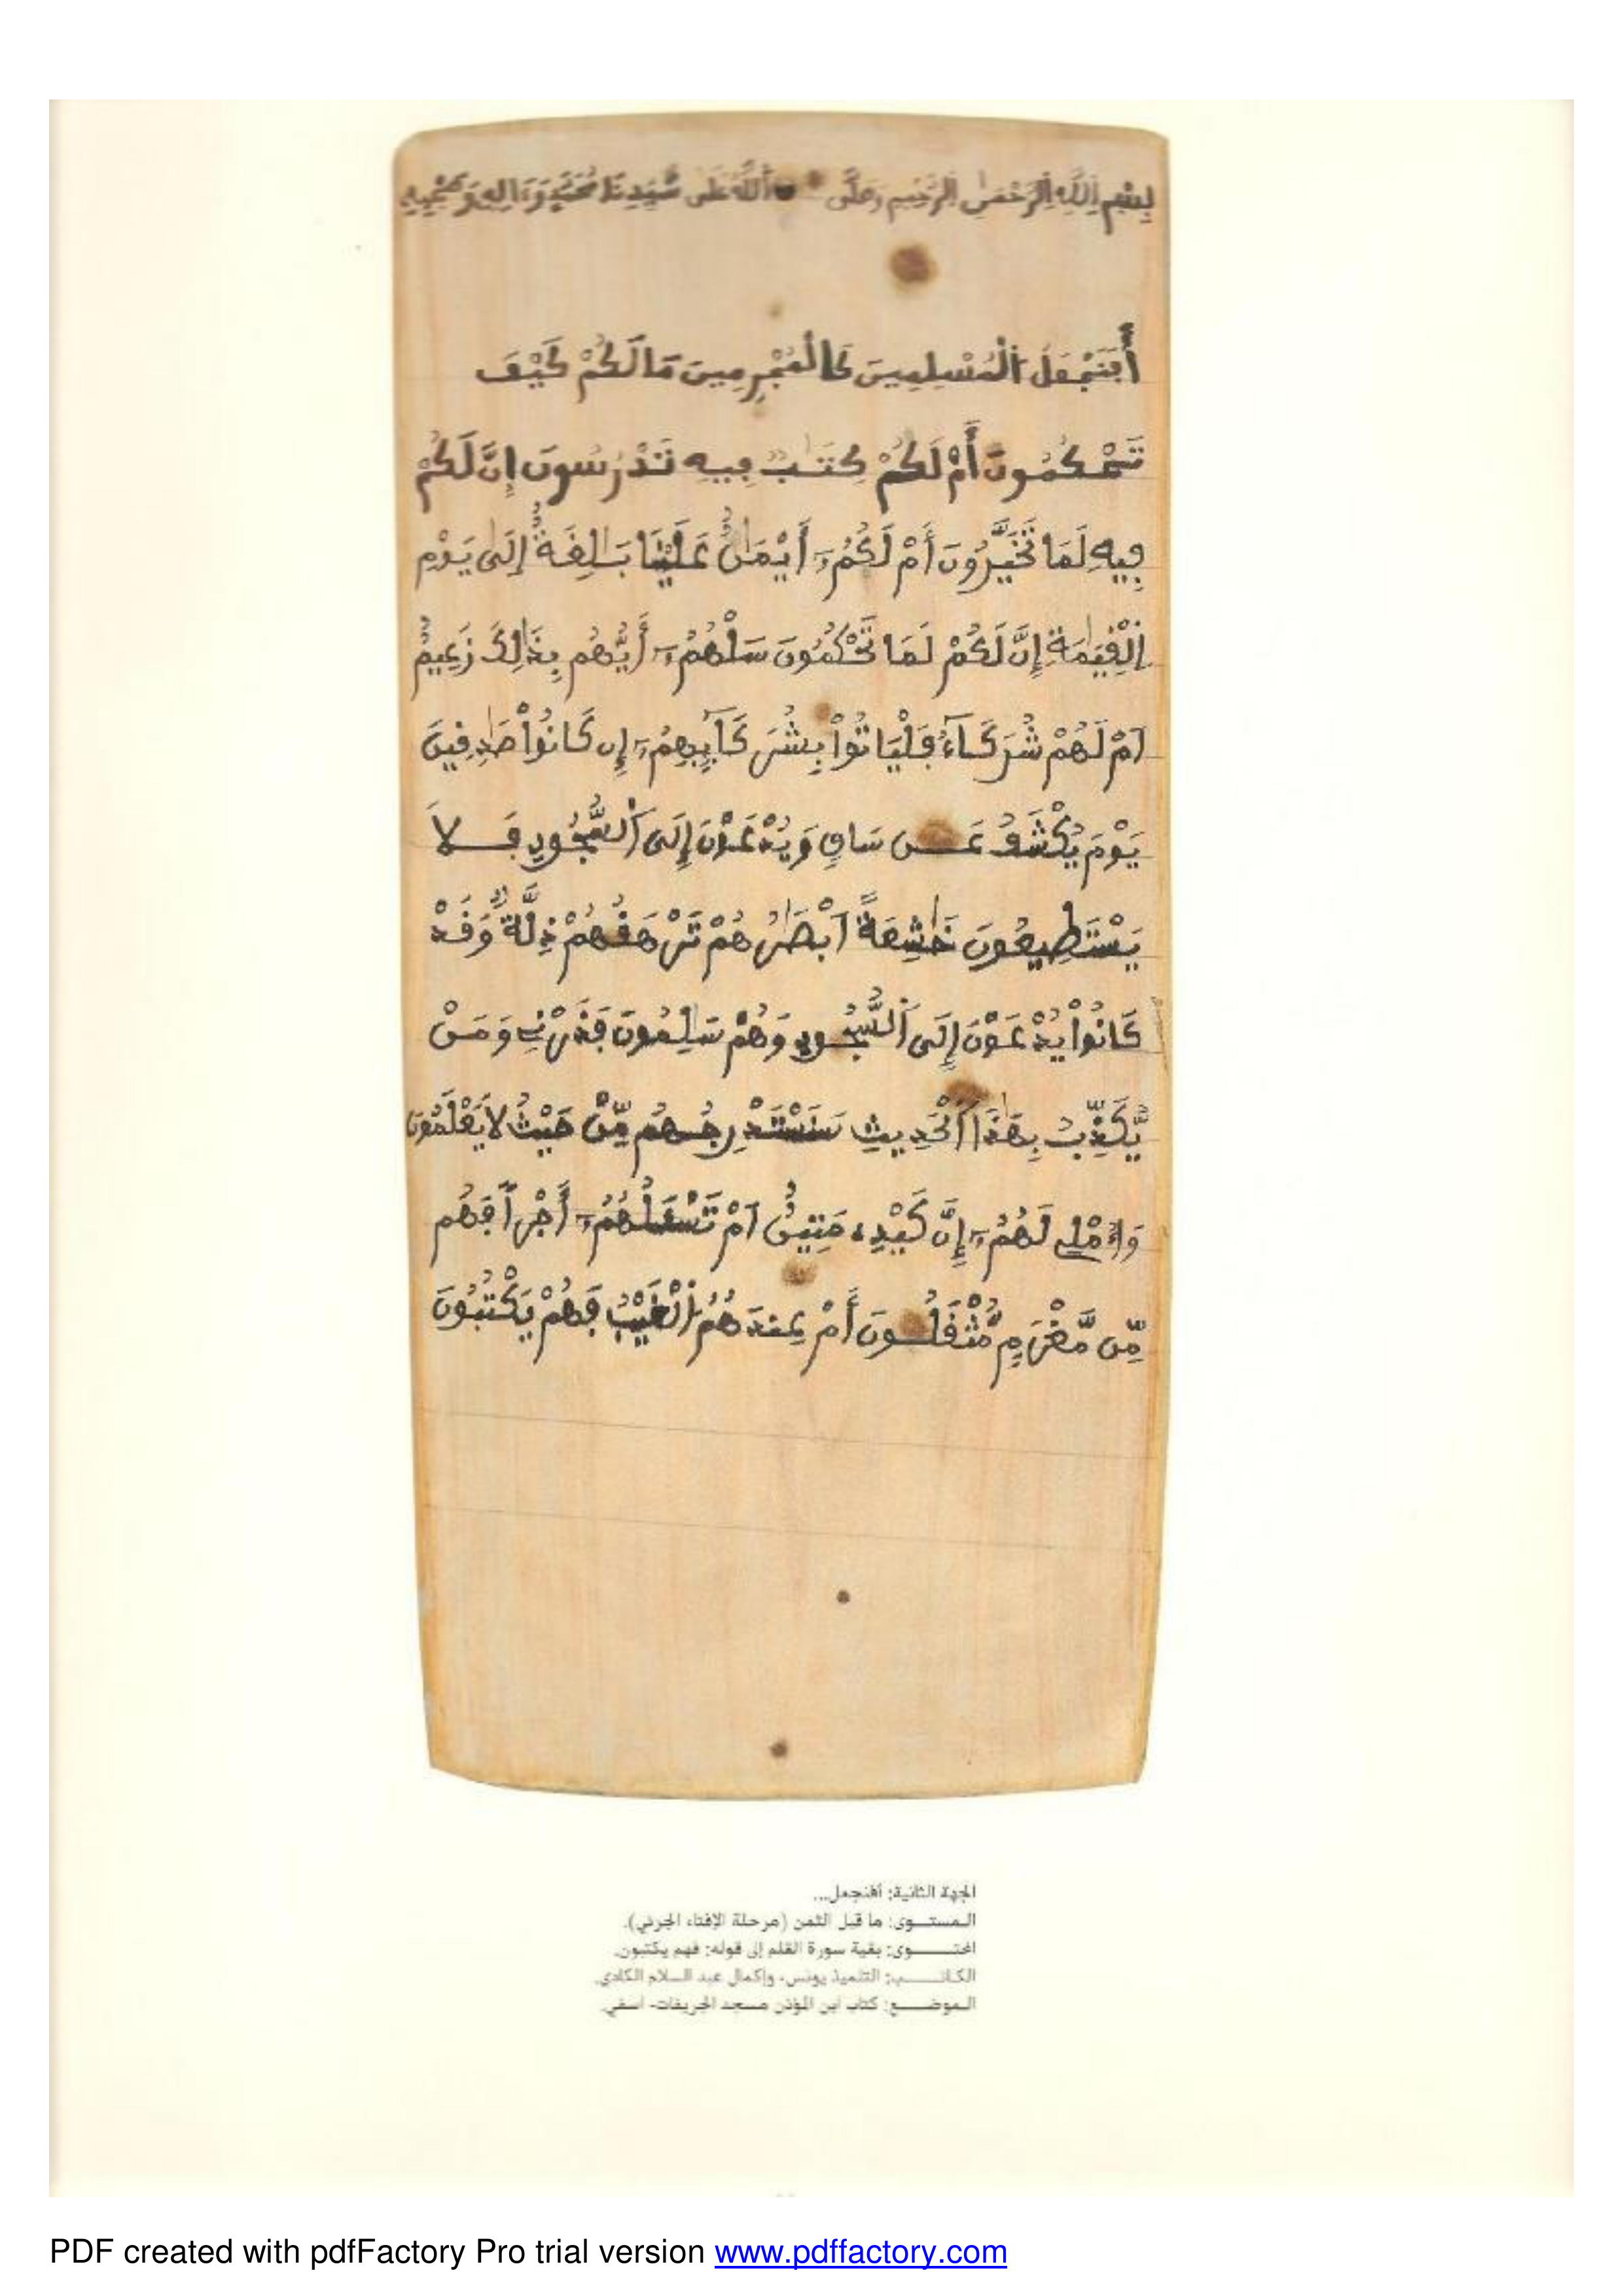 بسم الله الرحمن الرحيم وصلى الله على سيدنا محمد وءاله وصحبه
أَفَنَجْعَلُ اَ۬لْمُسْلِمِينَ كَالْمُجْرِمِينَ مَا لَكُمْ كَيْفَ
تَحْكُمُونَ أَمْ لَكُمْ كِتَٰبٌ فِيهِ تَدْرُسُونَ إِنَّ لَكُمْ
فِيهِ لَمَا تَخَيَّرُونَ أَمْ لَكُمُۥٓ أَيْمَٰنٌ عَلَيْنَا بَٰلِغَةٌ إِلَىٰ يَوْمِ
اِ۬لْقِيَٰمَةِ إِنَّ لَكُمْ لَمَا تَحْكُمُونَ سَلْهُمُۥٓ أَيُّهُم بِذَٰلِكَ زَعِيمٌ
اَمْ لَهُمْ شُرَكَآءُ فَلْيَاتُواْ بِشُرَكَآئِهِمُۥٓ إِن كَانُواْ صَٰدِقِينَ
يَوْمَ يُكْشَفُ عَن سَاقٍ وَيُدْعَوْنَ إِلَى اَ۬لسُّجُودِ فَلَا
يَسْتَطِيعُونَ خَٰشِعَةً اَبْصَٰرُهُمْ تَرْهَقُهُمْ ذِلَّةٌ وَقَدْ
كَانُواْ يُدْعَوْنَ إِلَى اَ۬لسُّجُودِ وَهُمْ سَٰلِمُونَ فَذَرْنِے وَمَنْ
يُّكَذِّبُ بِهَٰذَا اَ۬لْحَدِيثِ سَنَسْتَدْرِجُهُم مِّنْ حَيْثُ لَا يَعْلَمُونَ
وَأُمْلِے لَهُمُۥٓ إِنَّ كَيْدِے مَتِينٌ اَمْ تَسْـَٔلُهُمُۥٓ أَجْراً فَهُم
مِّن مَّغْرَمٍ مُّثْقَلُونَ أَمْ عِندَهُمُ اُ۬لْغَيْبُ فَهُمْ يَكْتُبُونَ
الجهة الثانية: أفنجعل...
المستـــوى: ما قبل الثمن (مرحلة الإفتاء الجزئي).
المحتـــــوى: بقية سورة القلم إلى قوله: فهم يكتبون.
الكاتـــــب: التلميذ يونس، وإكمال عبد السلام الكادي.
الموضـــــع: كتاب ابن المؤذن مسجد الجريفات- أسفي.
PDF created with pdfFactory Pro trial version www.pdffactory.com